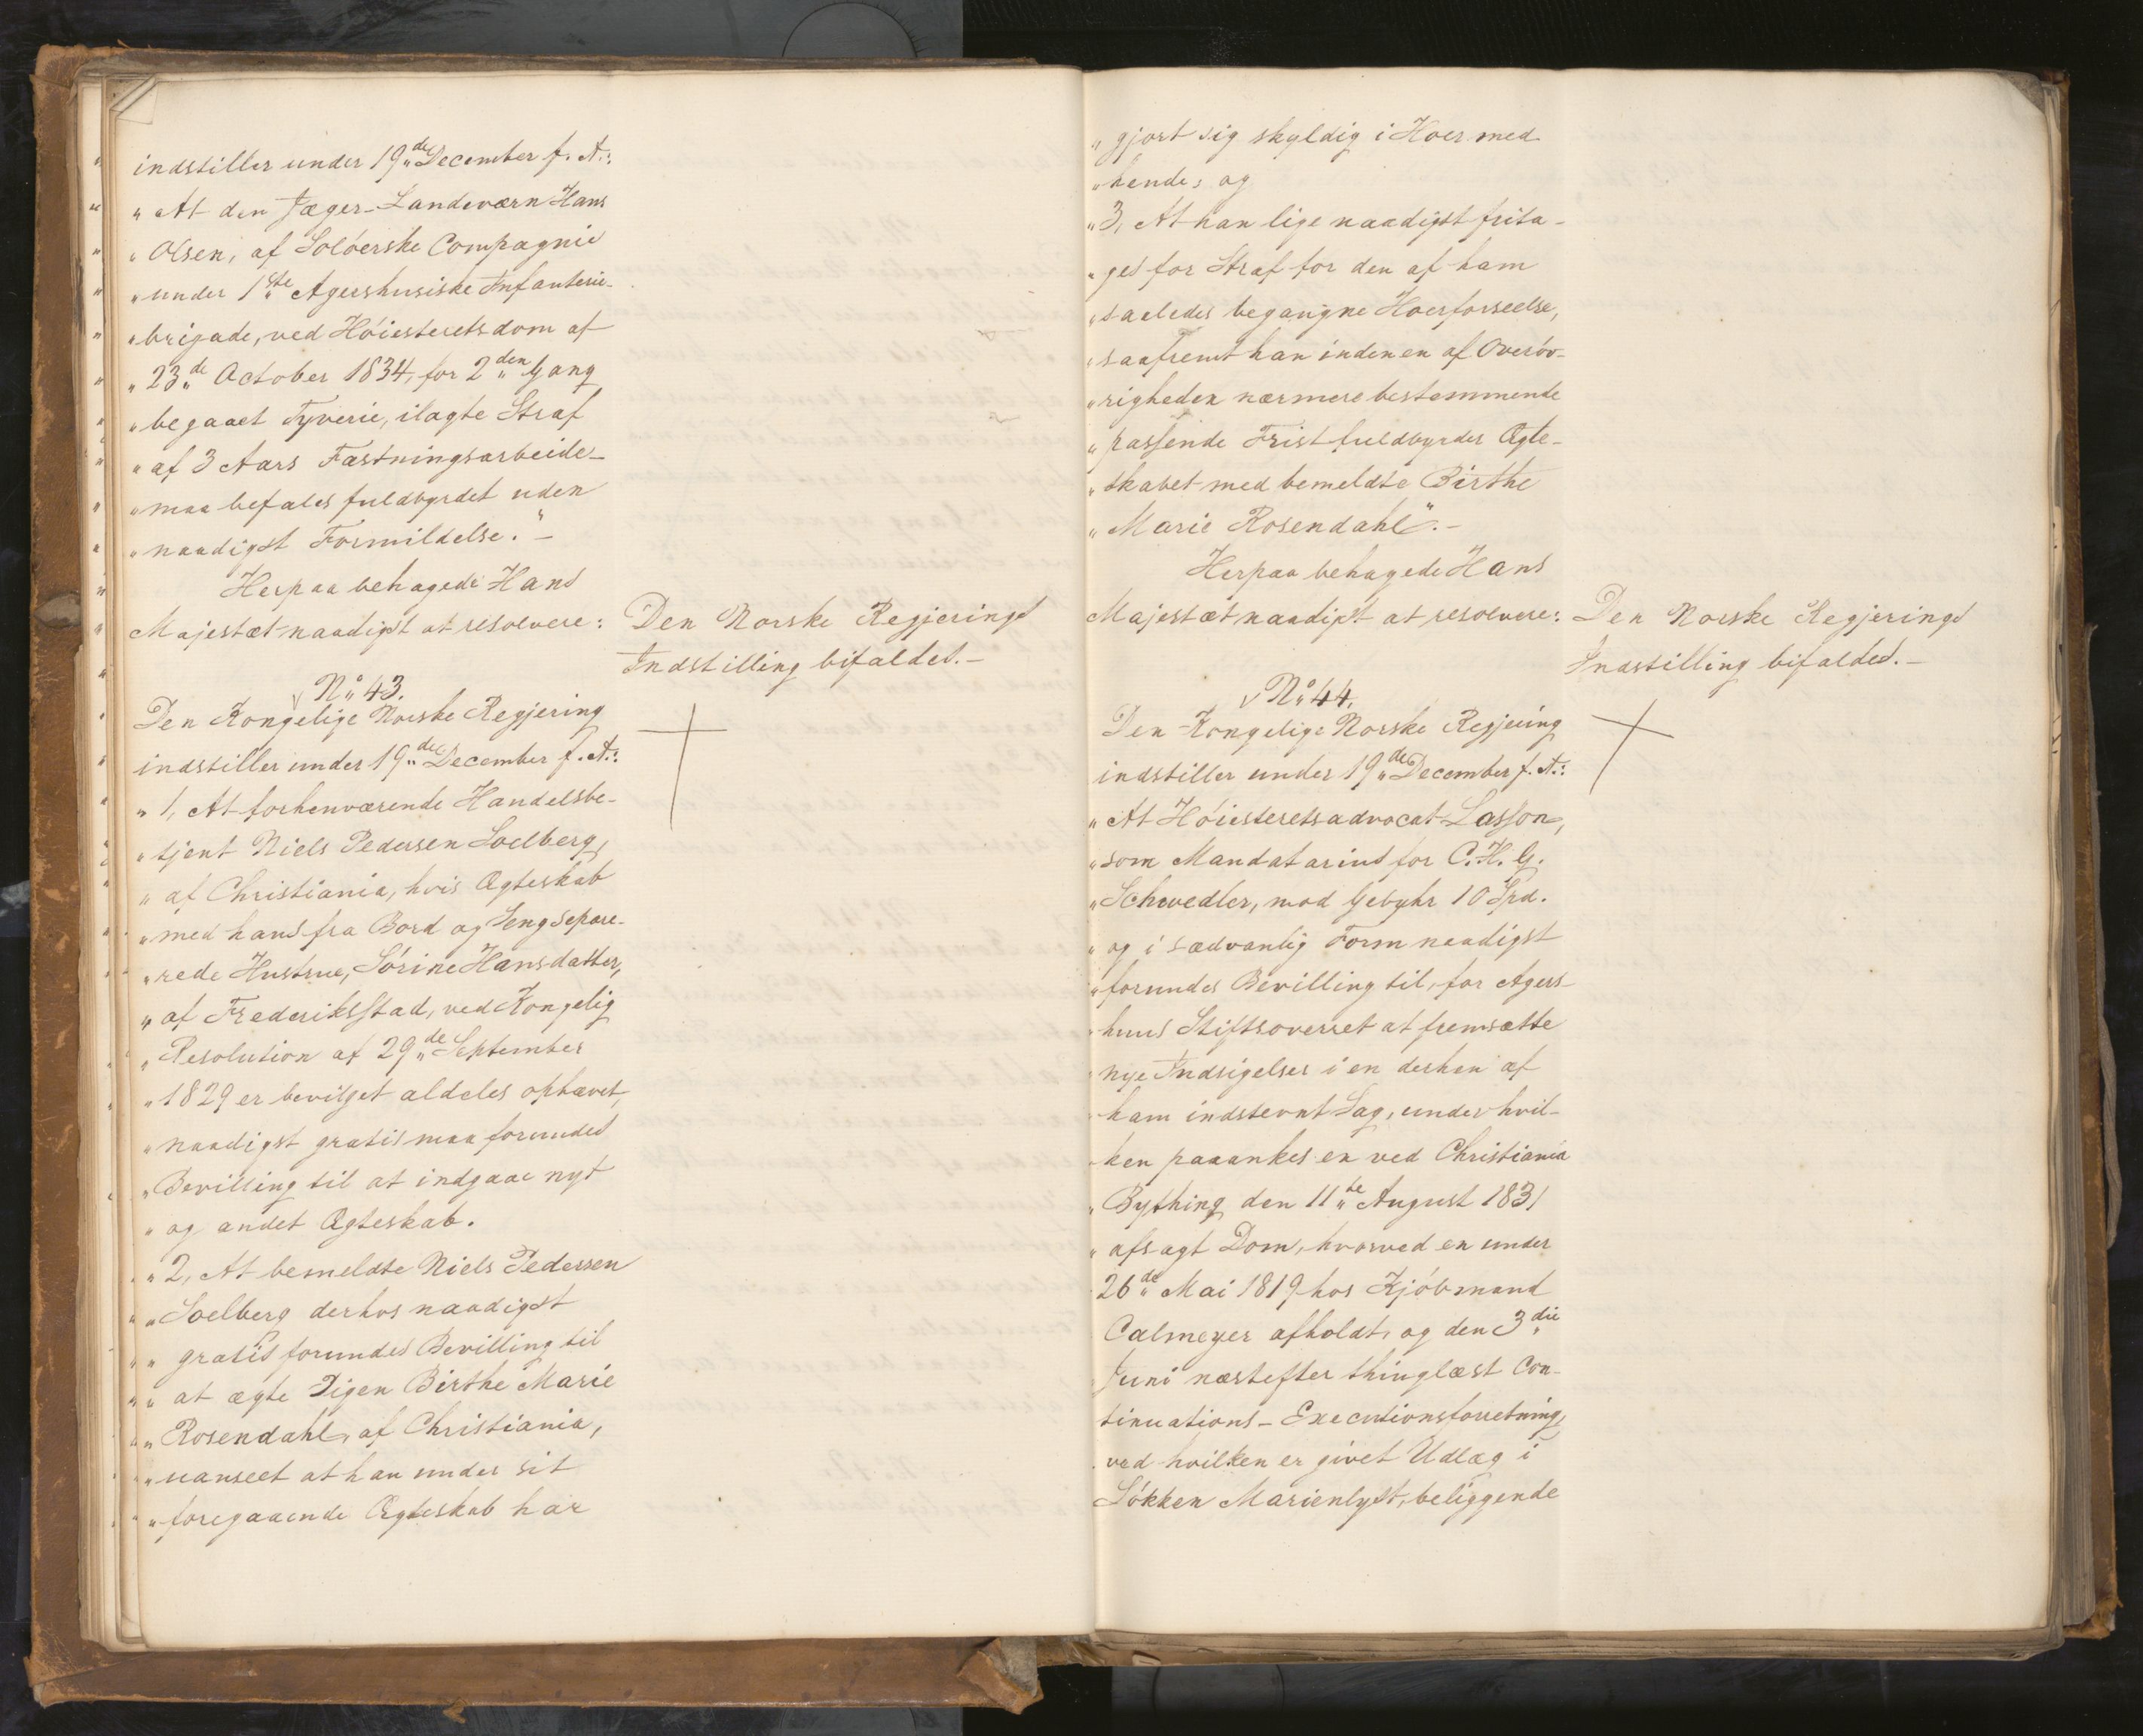 indstiller under 19de December f. A.:
„At den Jæger-Landeværn Hans
„Olsen, af Solöerske Compagnie
„under 1ste Agershusiske Infanterie-
„brigade, ved Höiesteretsdom af
„23de October 1834, for 2den Gang
„begaaet Tyverie, ilagte Straf
„af 3 Aars Fæstningsarbeide-
„maa befales fuldbyrdet uden
„naadigst Formildelse.“ -
Herpaa behagede Hans
Majestæt naadigst at resolvere:
Den Norske Regjerings
Indstilling bifaldes.-
No 43.
Den Kongelige Norske Regjering
indstiller under 19de December f. A.:
„1, At forhenværende Handelsbe-
„tjent Niels Pedersen Soelberg,
„af Christiania, hvis Ægteskab
„med hans fra Bord og Seng separe-
„rede Hustrue, Sörine Hansdatter,
„af Frederiksstad, ved Kongelig
„Resolution af 29de September
„1829 er bevilget aldeles ophævet,
„naadigst gratis maa forundes
„Bevilling til at indgaae nyt
„og andet Ægteskab.
„2, At bemeldte Niels Pedersen
„Soelberg derhos naadigst
„gratis forundes Bevilling til
„at ægte Pigen Birthe Marie
„Rosendahl, af Christiania,
„uanseet at han under sit
„foregaaende Ægteskab har
„gjort sig skyldig i Hoer med
„hende; og
„3, At han lige naadigst frita-
„ges for Straf for den af ham
„saaledes begangne Hoerforseelse,
„saafremt han inden en af Overöv-
„righeden nærmere bestemmende
„passende Frist fuldbyrder Ægte-
„skabet med bemeldte Birthe
„Marie Rosendahl“.-
Herpaa behagede Hans
Majestæt naadigst at resolvere:
Den Norske Regjerings
Indstilling bifaldes.-
No 44.
Den Kongelige Norske Regjering
indstiller under 19de December f. A.:
„At Höiesteretsadvocat Lasson,
„som Mandatarius for C. H. G.
„Schwedler, mod Gebyhr 10 Spd.
„og i sædvanlig Form naadigst
„forundes Bevilling til, for Agers-
„huus Stiftsoverret at fremsætte
„nye Indsigelser i en derhen af
„ham indstevnt Sag, under hvil-
„ken paaankes en ved Christiania
„Bything den 11te August 1831
„afsagt Dom, hvorved en under
26de Mai 1819 hos Kjöbmand
Calmeyer afholdt, og den 3die
Juni næstefter thinglæst Con-
tinuations-Executionsforretning,
ved hvilken er givet Udlæg i
Lökken Marienlyst, beliggende